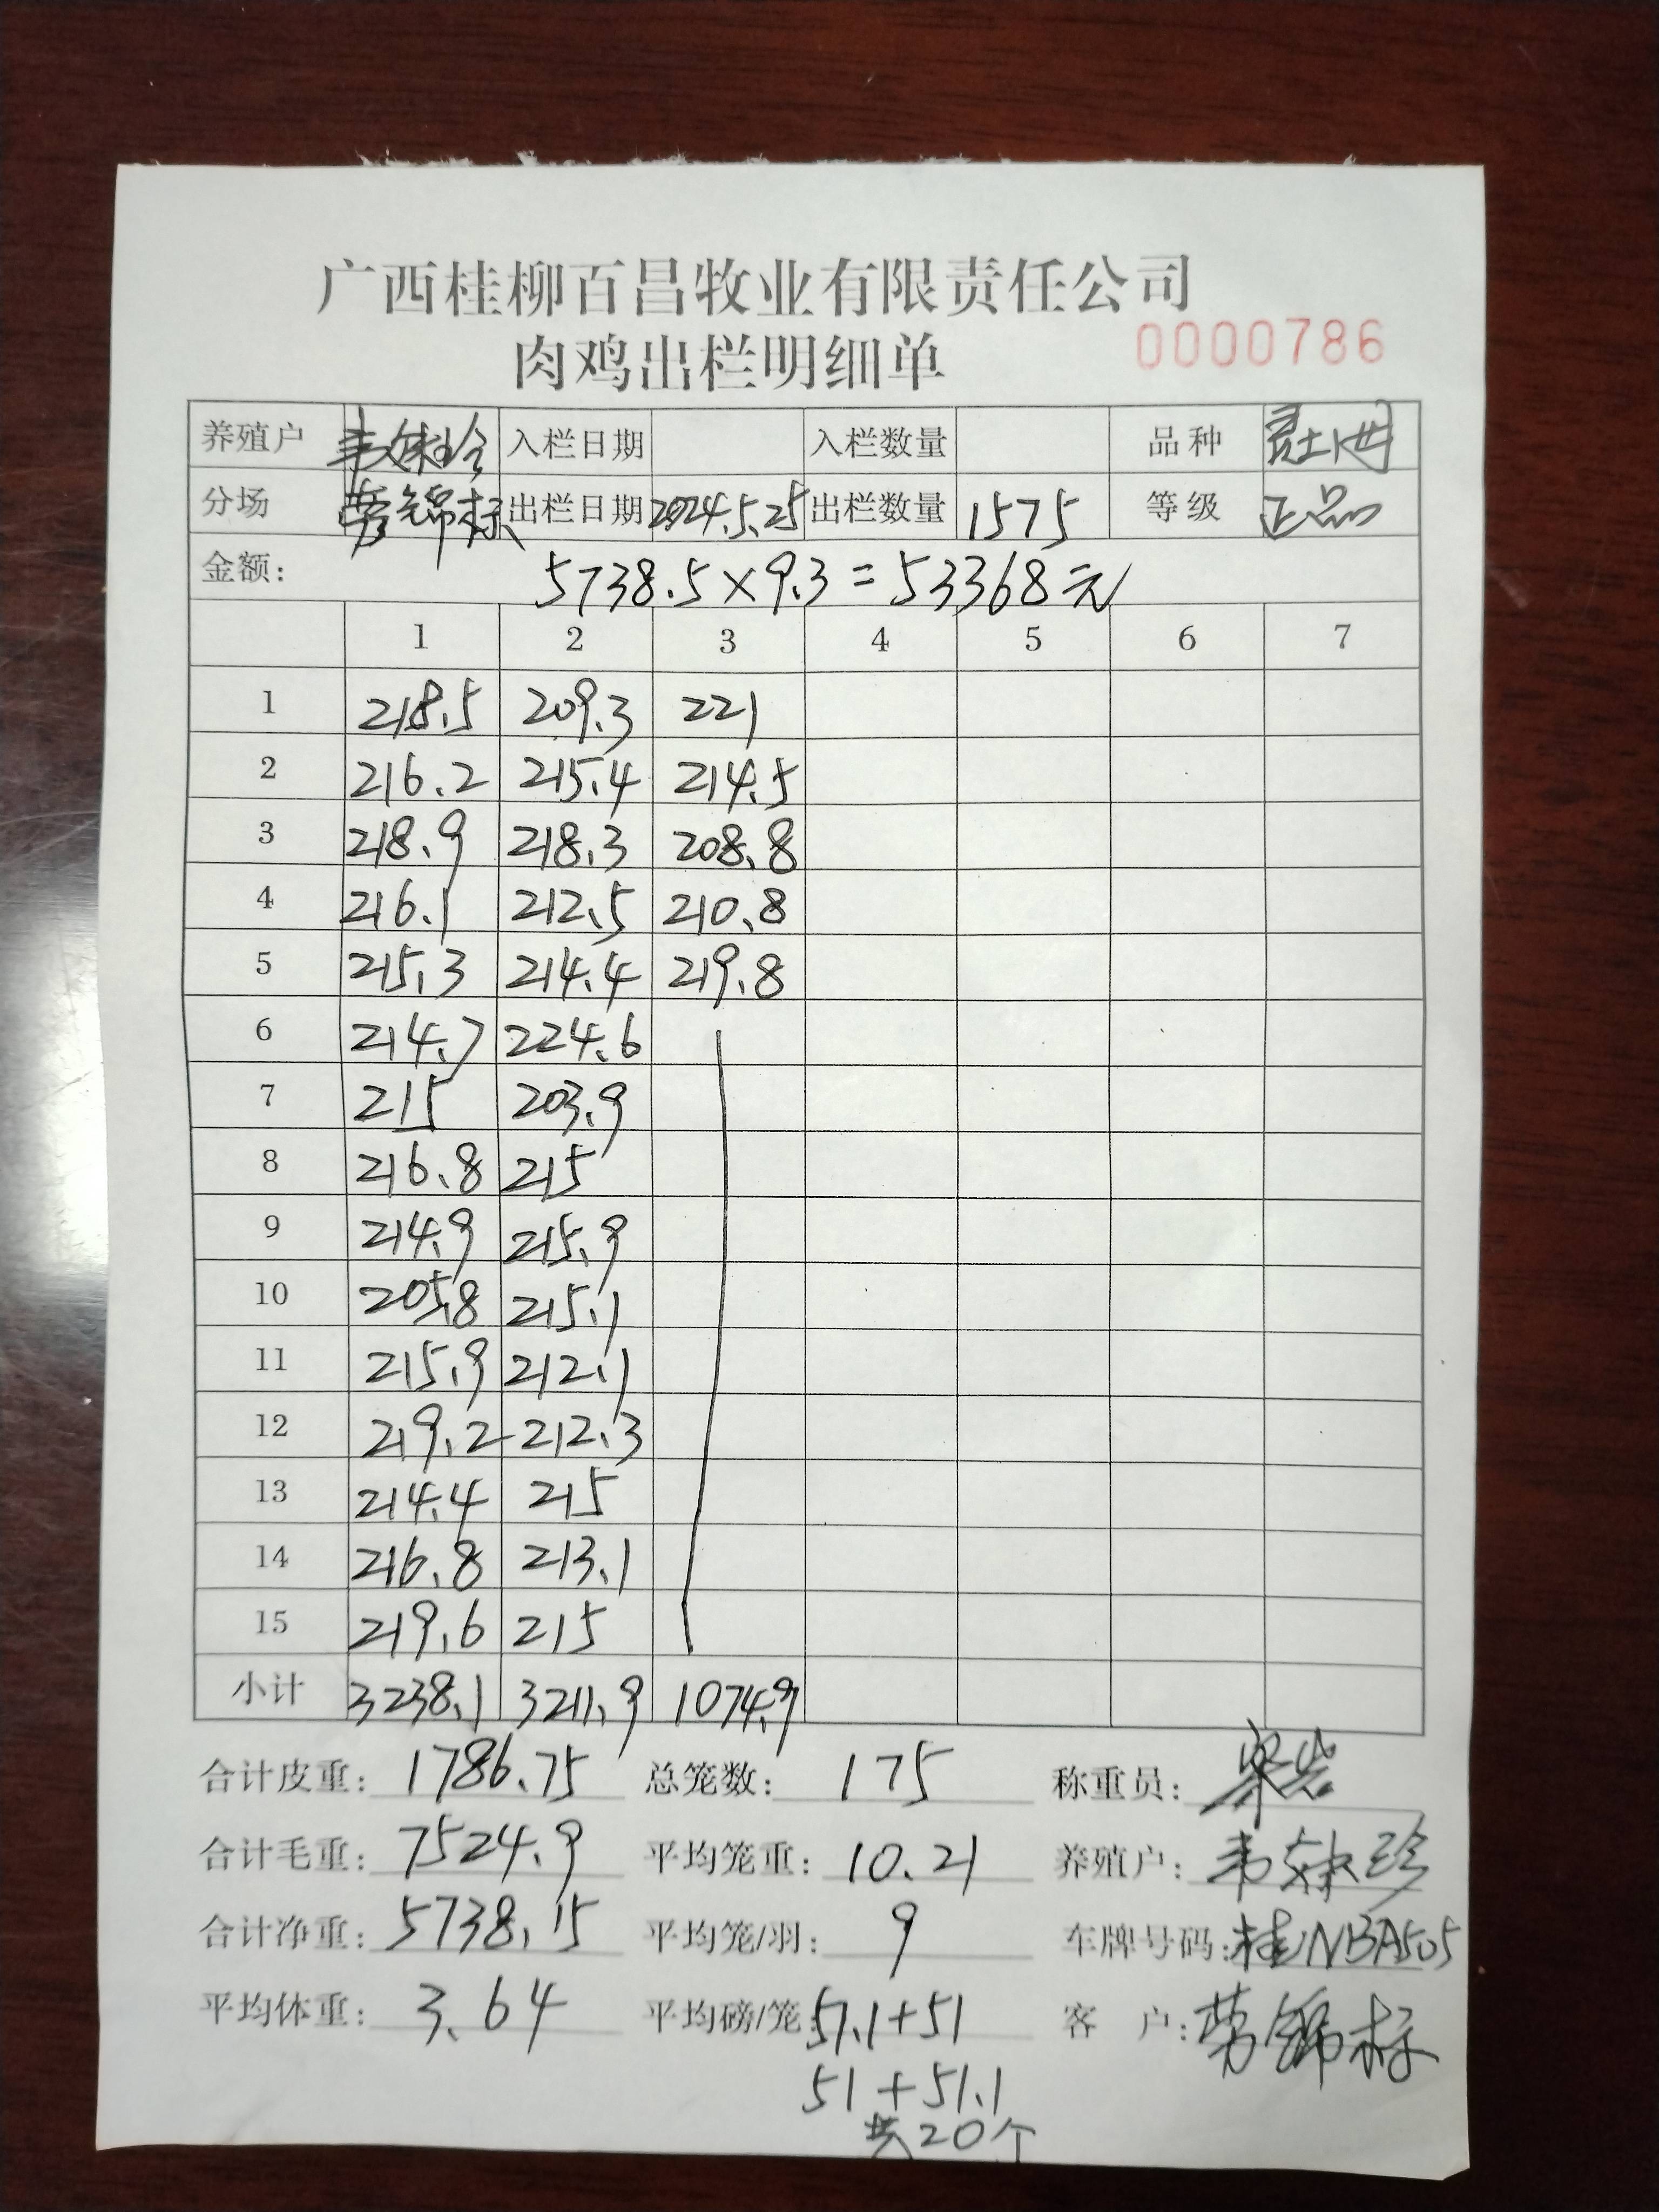 广西桂柳百昌牧业有限责任公司
肉鸡出栏明细单 0000786
养殖户 入栏日期 入栏数量 品种
分场 劳锦标 出栏日期 2024.5.25 出栏数量 1575 等级 正品
金额: 5738.5×9.3=53368元
1 2 3 4 5 6 7
1 218.5 209.3 221
2 216.2 215.4 214.5
3 218.9 218.3 208.8
4 216.1 212.5 210.8
5 215.3 214.4 219.8
6 214.7 224.6
7 215 203.9
8 216.8 215
9 214.9 215.9
10 205.8 215.1
11 215.9 212.1
12 219.2 212.3
13 214.4 215
14 216.8 213.1
15 219.6 215
小计 3238.1 3211.9 1074.9
合计皮重: 1786.75 总笼数: 175 称重员:
合计毛重: 7524.9 平均笼重: 10.21 养殖户: 韦
合计净重: 5738.15 平均笼/羽: 9 车牌号码: 桂NBA505
平均体重: 3.64 平均磅/笼: 51.1+51 客 户: 劳锦标
51+51.1
共20个